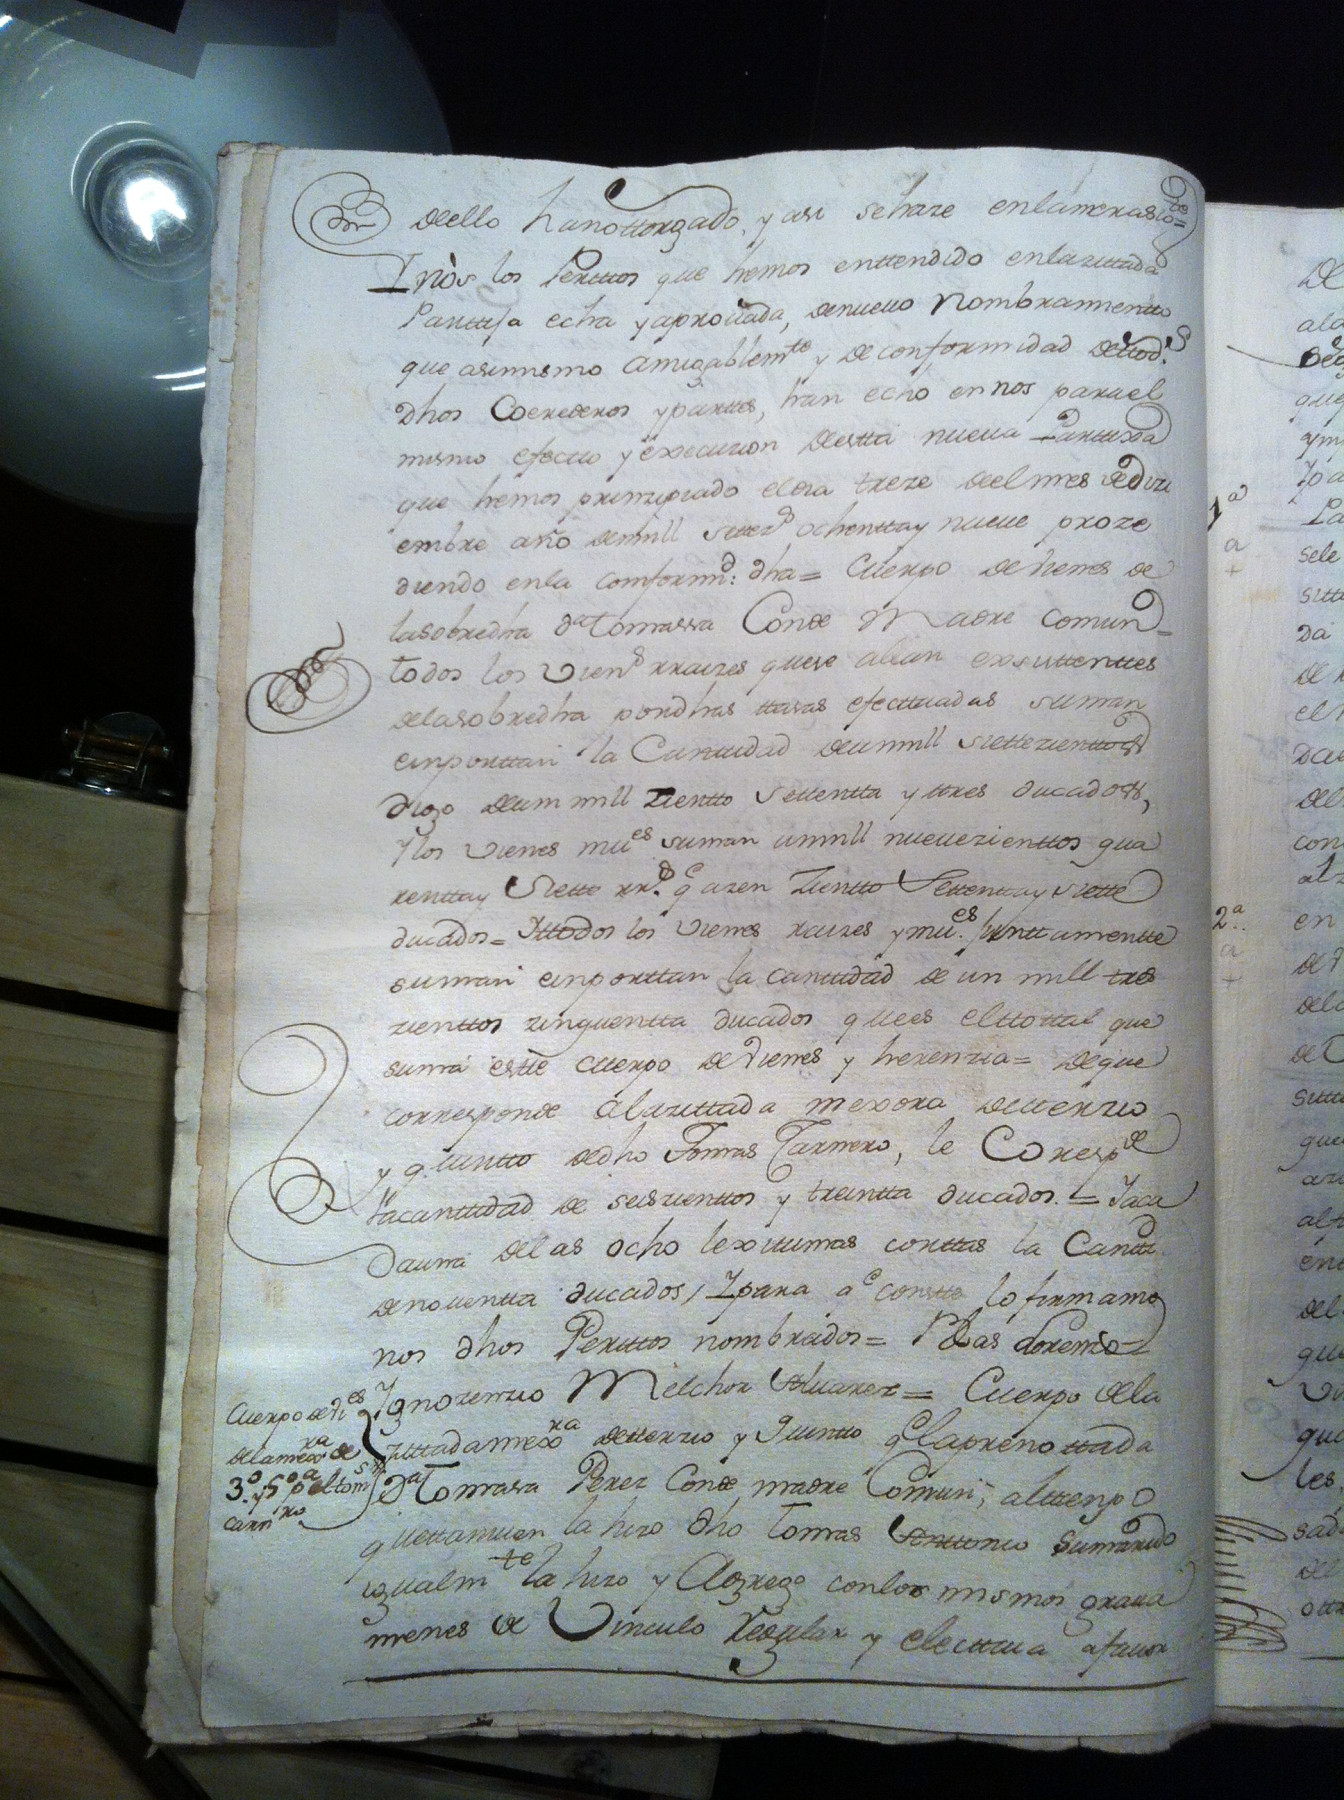 dello hanottorgado, y asi sehaze enlamexasio=
Inòs los Peritos que hemos enttendido enlazittada
Parttija echa y aprouada, denueuo Nombramientto
que asimismo amigablemte y deconformidad dettods
dhos Coerederos y parttes, han echo en nos parael
mismo efectto y execuzion destta nueua Parttixa
que hemos prinzipiado eldia treze deelmes de Dizi
embre año demill settezs ochenttay nueue proze
diendo enla Comformd: dha= Cuerpo de vienes de
lasobredha da Tomassa Conde Madre Comun=
todos los viens rraizes quese allan exsisttenttes
delasobredha pordhas ttasas efecttuadas suman
eimporttan la Canttidad deunmill setteezienttos
digo deun mill zientto settentta y ttres ducados,
Ylos vienes mues suman unmill nueuezienttos qua
renttay siette rrs. qe azen zientto settenttay siette
ducados= Yttodos los vienes raizes y mues. junttamentte
suman eimporttan la canttidad de un mill tres
zienttos zinquentta ducados quees elttottal que
suma estte cuerpo de vienes y herenzia= deque
corresponde álazittada mexora detterzio
y quintto dedho Tomas Carnero, le Coresp.de
lacanttidad de seiszienttos y treintta ducados.= Yaca
dauna delas ocho lexittimas corttas la Cantid.
denouentta ducados, Ypara qe constte lo firmamo
nos dhos Perittos nombrados= Blas Lorenzo=
Ygnozenzio Melchor Aluarez= Cuerpo dela
zittadamexra detterzio y Quintto qe laprenottada
da Tomassa Perez Conde madre Comun, alttenpo
quettamuien la hizo dho Tomas Anttonio sumarido
igualmte la hizo y Agrego conlos mismos graua
menes de Vinculo Regular y electtiua afauor
Cuerpo de vies
delamexra de
3o. y 5o pa eltoms
Carnro